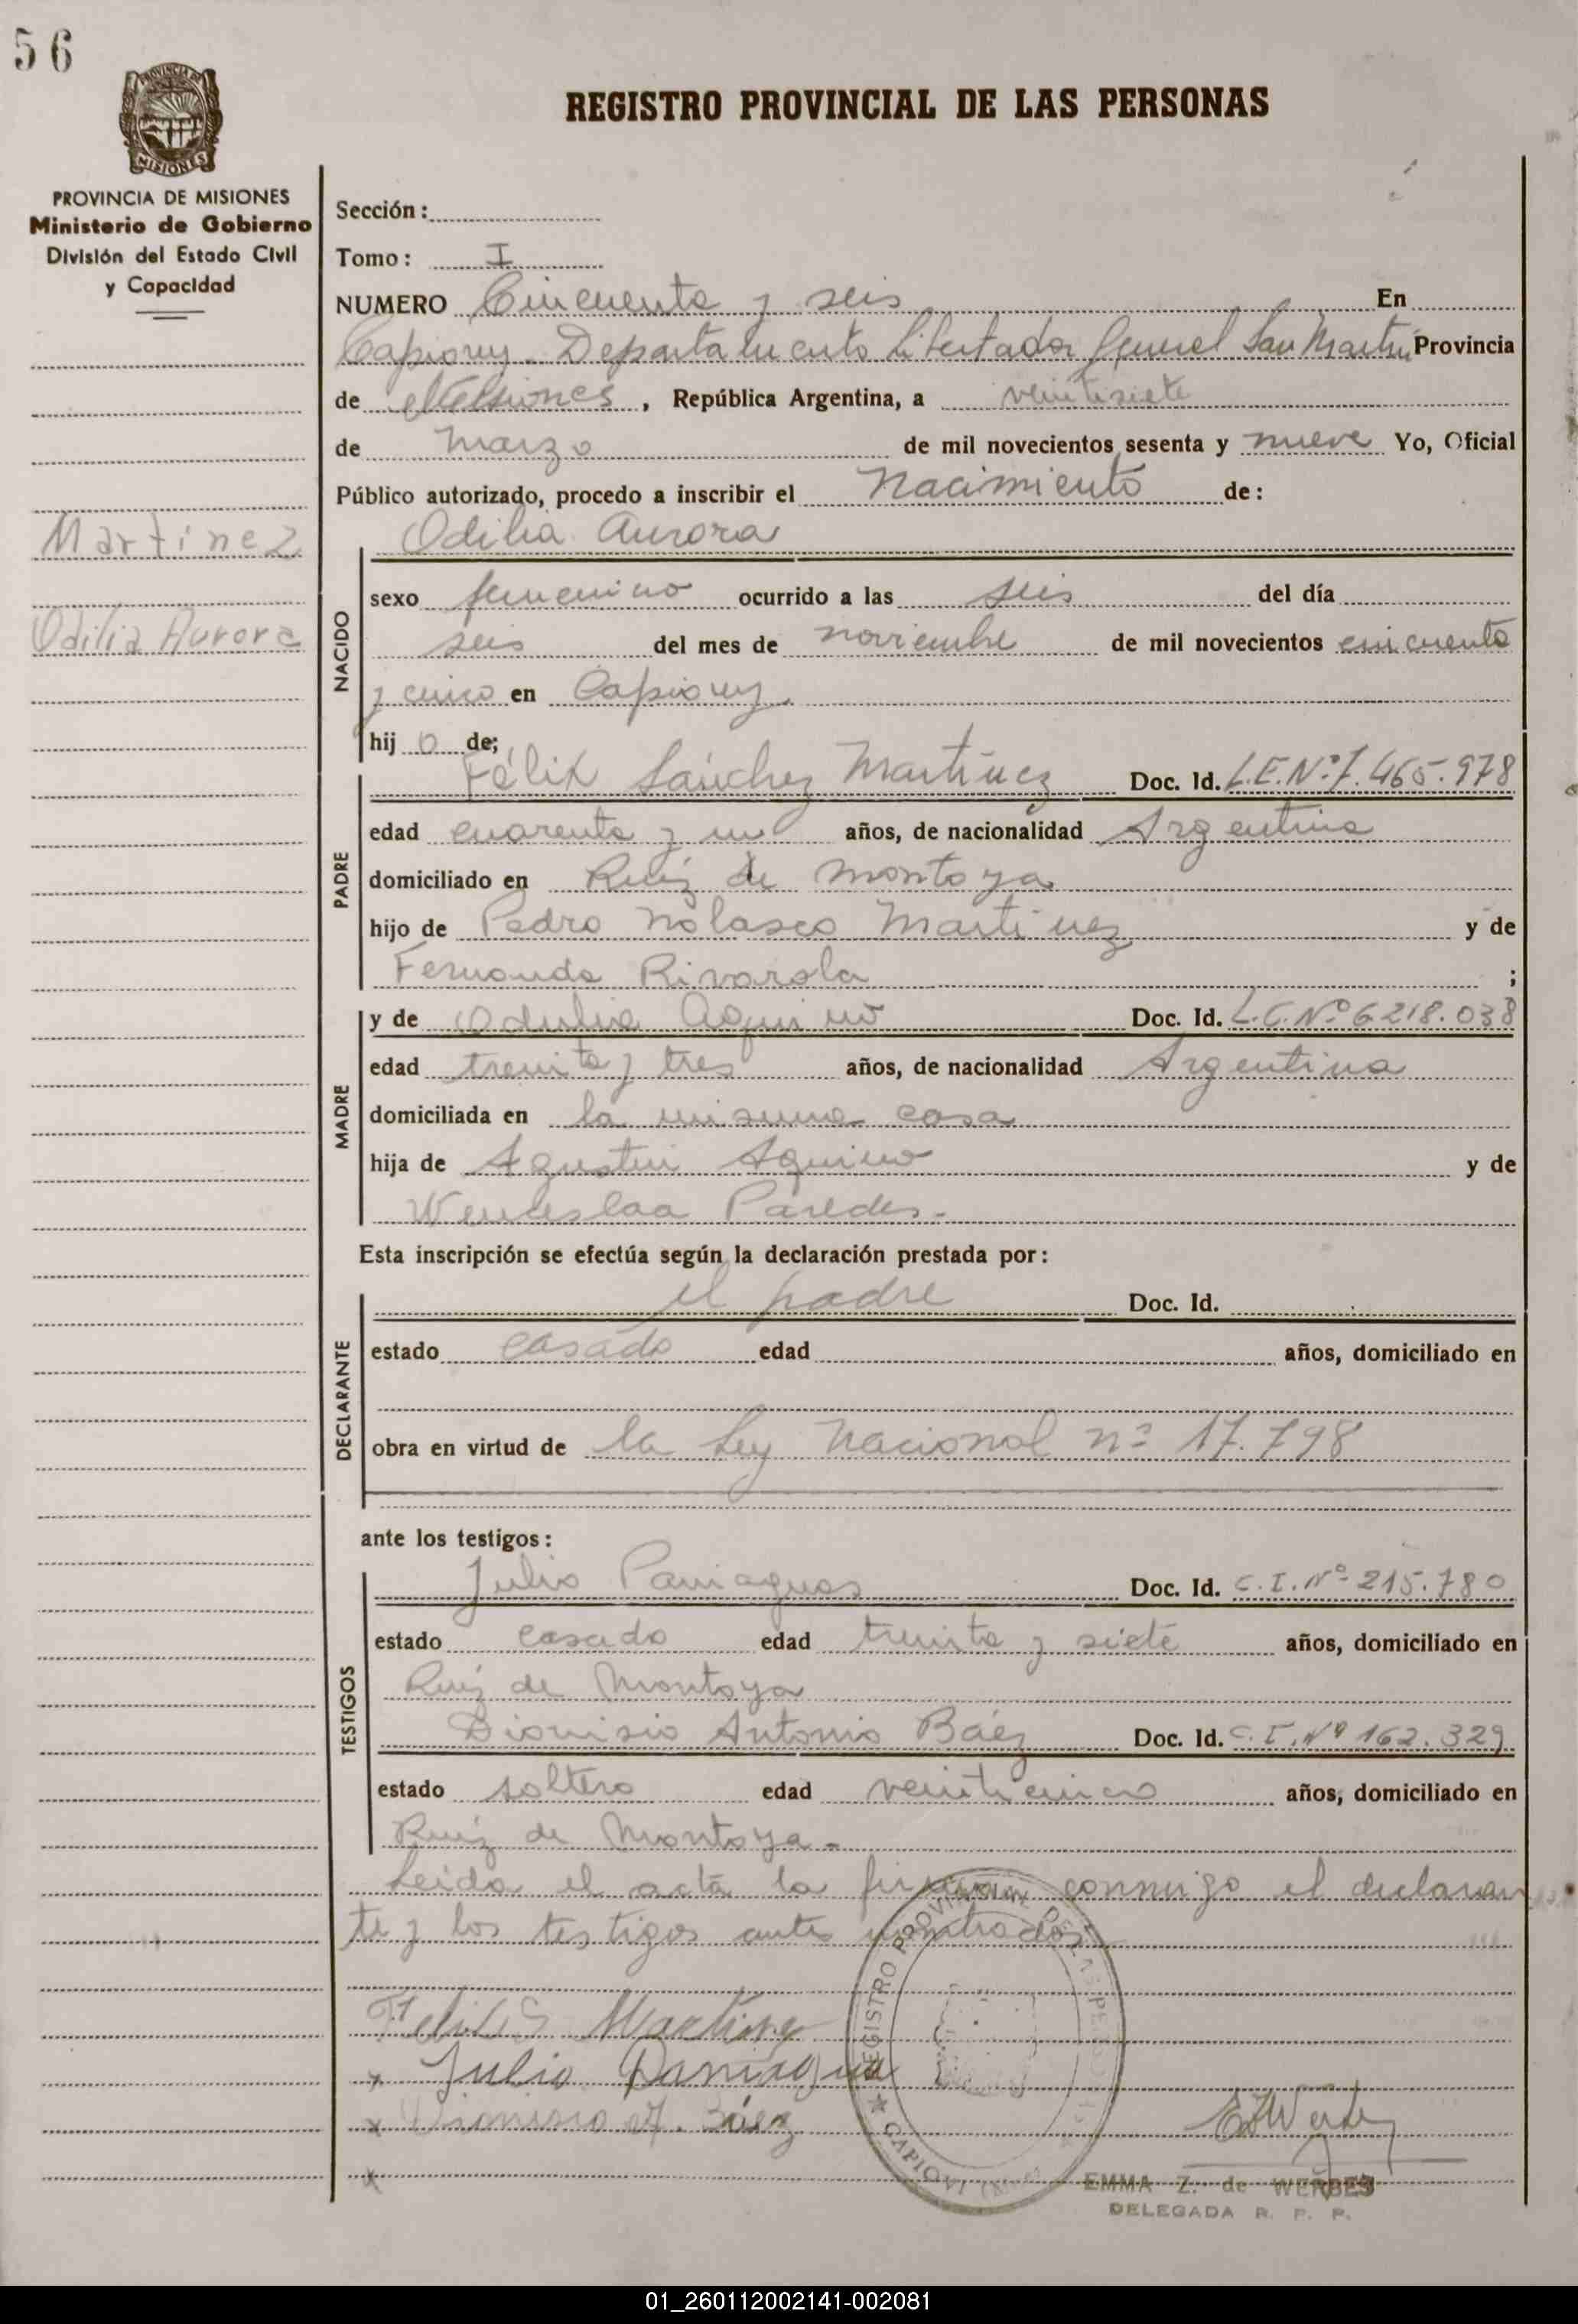 56
PROVINCIA DE
MISIONES
REGISTRO PROVINCIAL DE LAS PERSONAS
PROVINCIA DE MISIONES
Ministerio de Gobierno
División del Estado Civil
y Capacidad
Martínez
Odilia Aurora
Sección:
Tomo: I
NUMERO Cincuenta y seis En
Capiovy. Departamento Libertador General San Martín Provincia
de Misiones, República Argentina, a veintisiete
de Marzo de mil novecientos sesenta y nueve Yo, Oficial
Público autorizado, procedo a inscribir el Nacimiento de:
Odilia Aurora
NACIDO
sexo femenino ocurrido a las seis del día
seis del mes de noviembre de mil novecientos cincuenta
y cinco en Capiovy.
hij o de;
PADRE
Félix Sánchez Martínez Doc. Id. L.E.Nº 7.465.978
edad cuarenta y un años, de nacionalidad Argentina
domiciliado en Ruiz de Montoya
hijo de Pedro Nolasco Martinez y de
Fernanda Rivarola ;
MADRE
y de Odulia Aquino Doc. Id. L.C.Nº 6.218.038
edad treinta y tres años, de nacionalidad Argentina
domiciliada en la misma casa
hija de Agustin Aquino y de
Wenceslaa Paredes.-
Esta inscripción se efectúa según la declaración prestada por:
DECLARANTE
el padre Doc. Id.
estado casado edad años, domiciliado en
obra en virtud de la Ley Nacional nº 17.798
ante los testigos:
TESTIGOS
Julio Paniaguas Doc. Id. C.I.Nº 215.780
estado casado edad treinta y siete años, domiciliado en
Ruiz de Montoya
Dionisio Antonio Báez Doc. Id. C.I.Nº 162.329
estado soltero edad veinticinco años, domiciliado en
Ruiz de Montoya.-
Leída el acta la firman conmigo el declaran
te y los testigos antes nombrados
Felix S Martinez
x Julio Paniagua
x Dionisio A. Báez
x
REGISTRO PROVINCIAL DE LAS PERSONAS
CAPIOVI
EMMA Z. de WERBES
DELEGADA R. P. P.
01_260112002141-002081